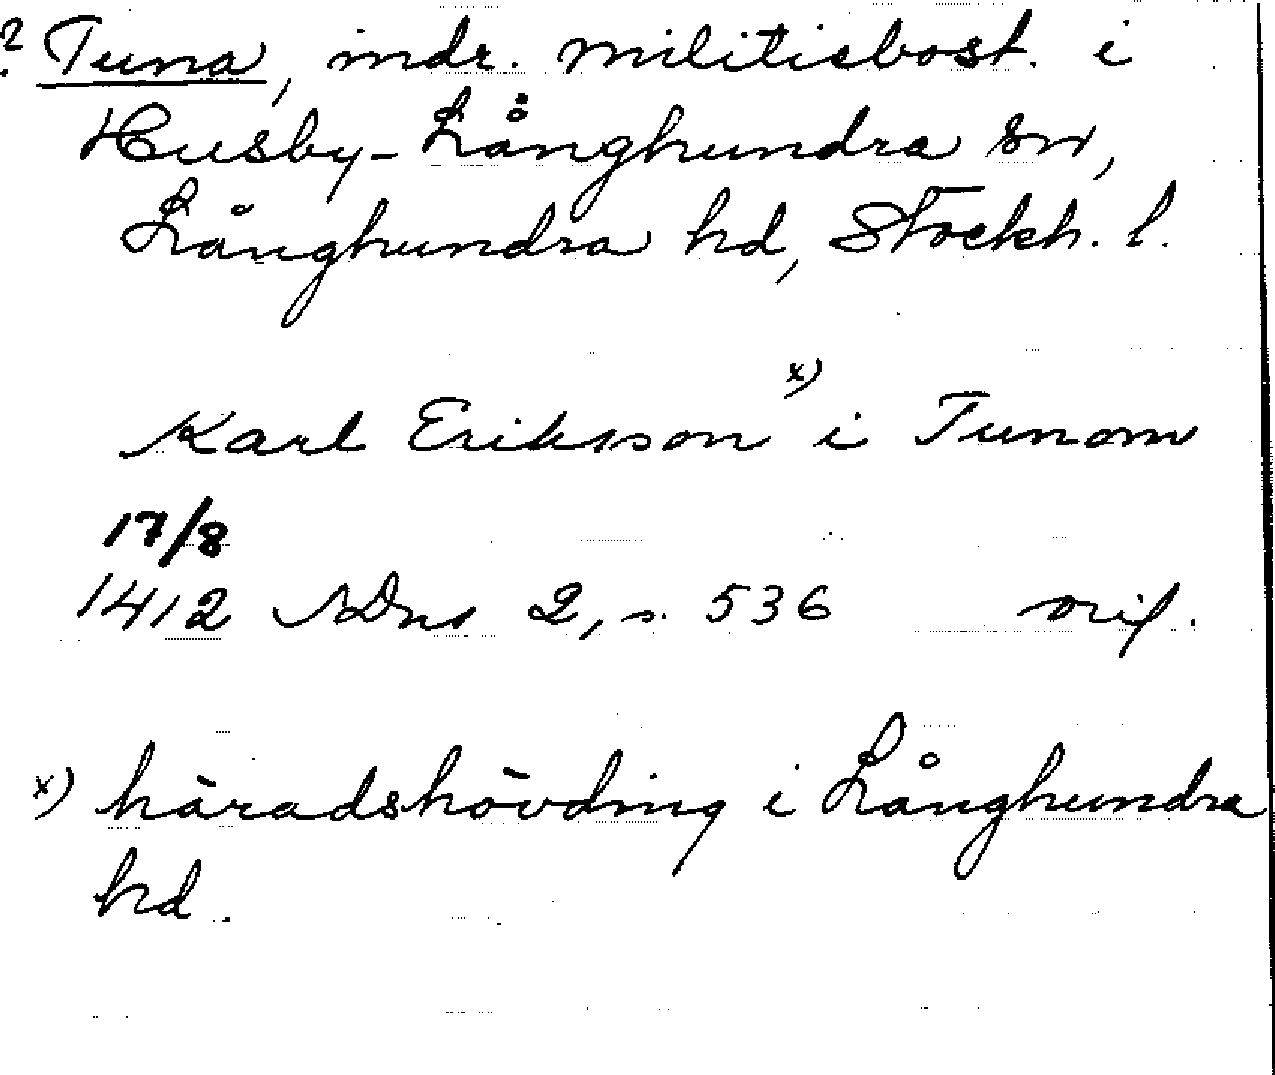 ? Tuna, indr. militiebost. i
Husby-Långhundra sn,
Långhundra hd, Stockh. l.
Karl Eriksson x) i Tunom
17/8
1412 SDns 2, s. 536 orig.
x) häradshövding i Långhundra
hd.